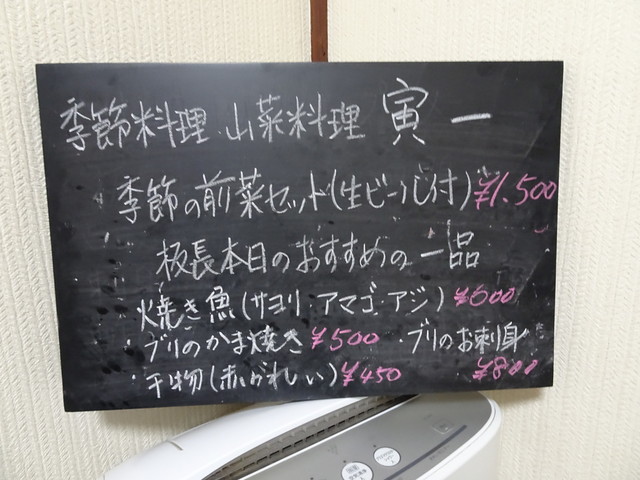 季節料理 山菜料理 寅一
季節の前菜セット(生ビール付)¥1.500
板長本日のおすすめの一品
焼き魚(サヨリ・アマゴ・アジ) ¥600
・ブリのかま焼き ¥500 ・ブリのお刺身 ¥800
・干物(赤がれい) ¥450